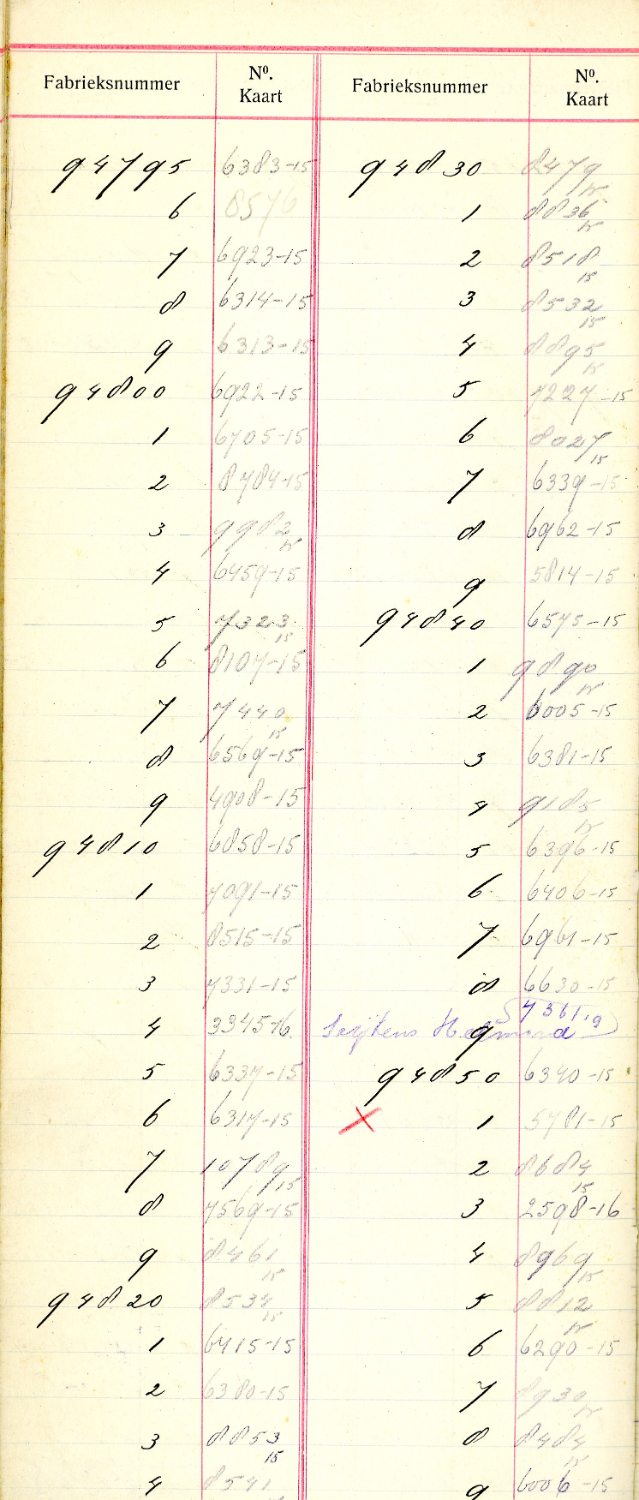 Fabrieksnummer Nº. Kaart
94795 6383-15
6 8576
7 6923-15
8 6314-15
9 6313-15
94800 6922-15
1 6705-15
2 8784-15
3 9982 15
4 6459-15
5 7323 15
6 8107-15
7 7440 15
8 6569-15
9 4908-15
94810 6858-15
1 7091-15
2 8515-15
3 7331-15
4 3345-16
5 6337-15
6 6317-15
7 10789 15
8 7569-15
9 8461 15
94820 8534 15
1 6415-15
2 6380-15
3 8853 15
4 8541 15
Fabrieksnummer Nº. Kaart
94830 8479 15
1 8836 15
2 8518 15
3 8532 15
4 8895 15
5 7227-15
6 8027 15
7 6339-15
8 6962-15
9 5814-15
94840 6575-15
1 9890 15
2 6005-15
3 6381-15
4 9185 15
5 6396-15
6 6406-15
7 6961-15
8 6630-15
9 7361.9
94850 6340-15
X 1 5781-15
2 8684 15
3 2598-16
4 8969 15
5 8812 15
6 6290-15
7 8930 15
8 8484 15
9 6006-15